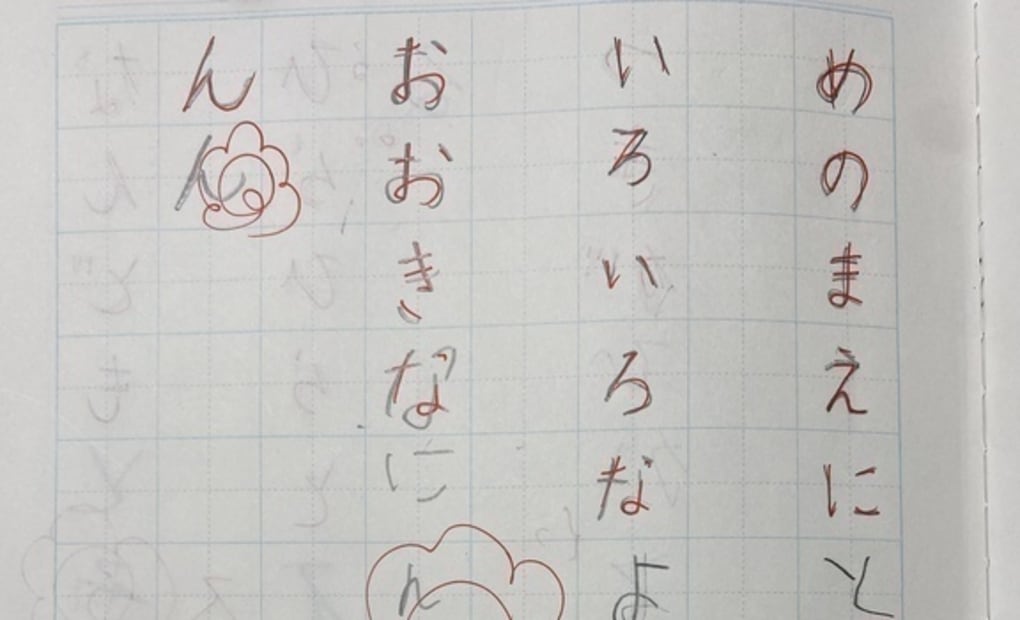 めのまえにと
いろいろなよ
おおきなにん
んん